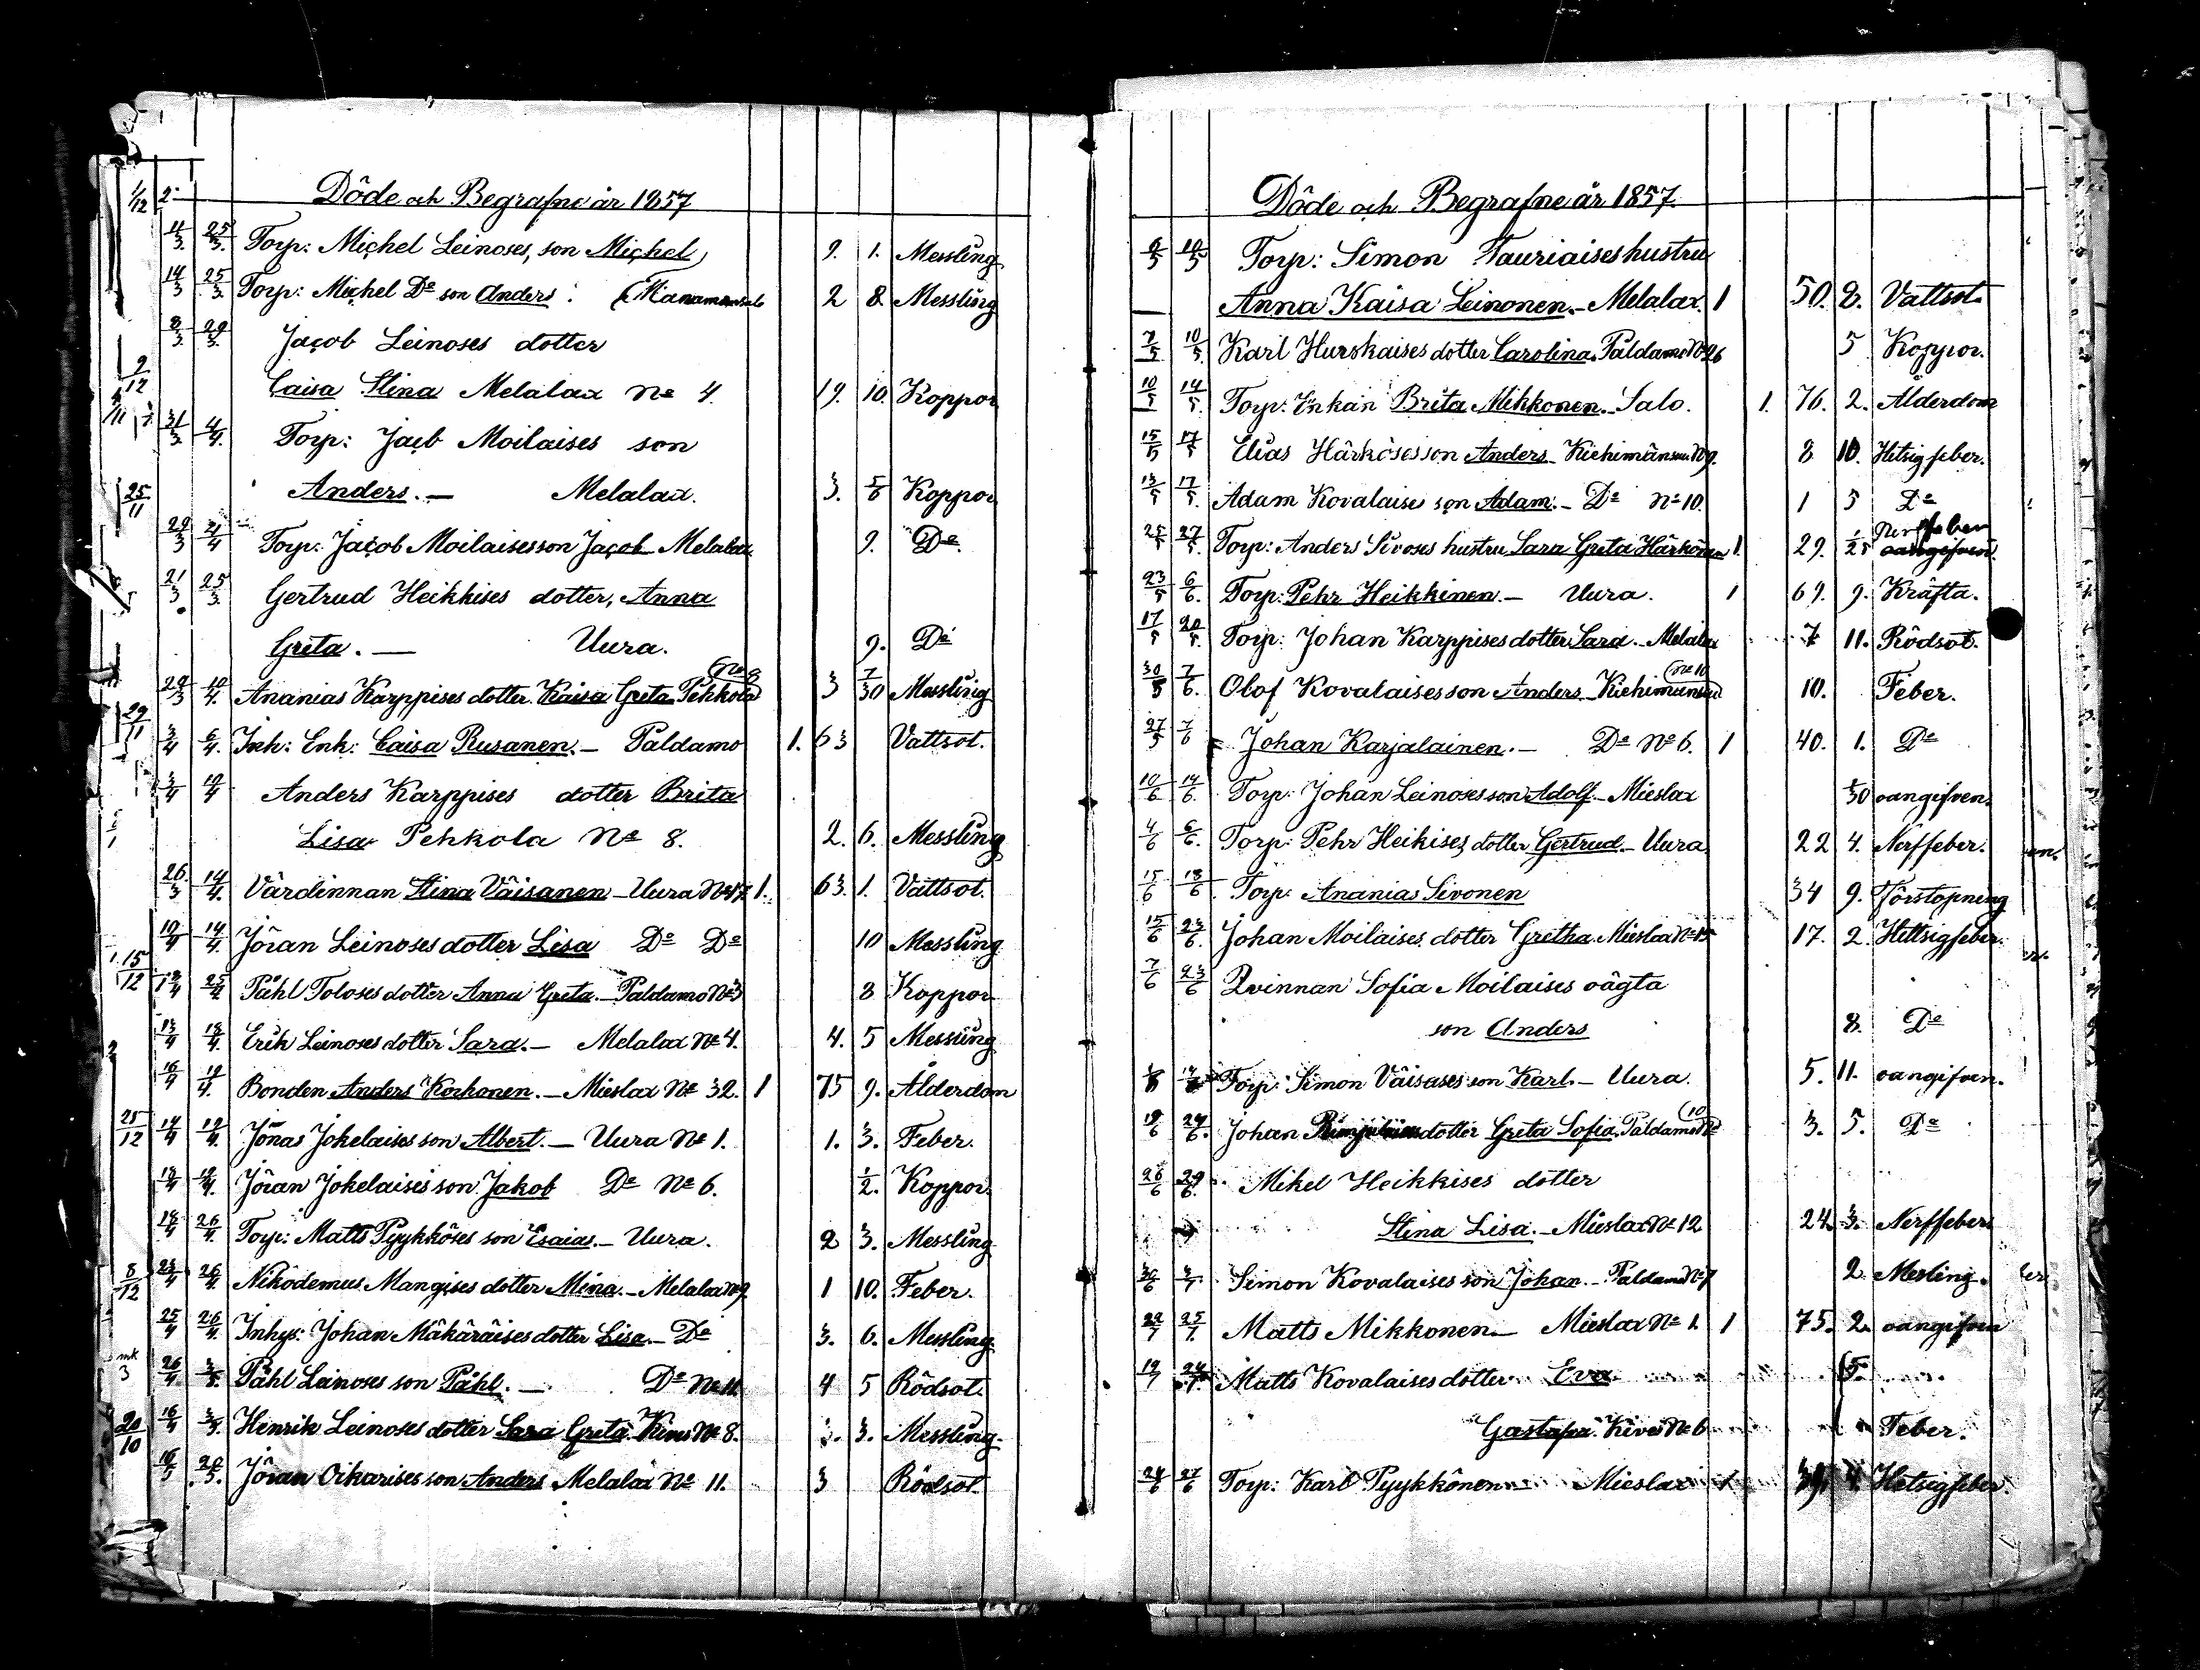 Döde och Begrafne år 1857
11/3 25/3 Torp: Michel Leinoses, son Michel 9. 1. Messling
14/3 25/3 Torp: Michel Do son Anders. 2 8. Messling
8/3 29/3 Jacob Leinoses dotter
Caisa Stina Melalax No 4. 19. 10. Koppor
31/3 4/4 Torp: Jacb Moilaises son
Anders. — Melalax. 3. 5/6 Koppor
29/3 Torp: Jacob Moilaises son Jacob Melalax 9. Do.
21/3 25/3 Gertrud Heikkises dotter, Anna
Greta. — Uura. 9. Do
29/3 10/4 Ananias Karppises dotter Kaisa Greta Pehkola 3 7/30 Messling
3/4 6/4 Inh: Enk: Caisa Rusanen. — Paldamo 1. 63 Vattsot.
3/4 Anders Karppises dotter Brita
Lisa Pehkola No 8. 2. 6. Messling
26/3 14/4 Värdinnan Stina Väisanen — Uura No 17 1. 63. 1. Vattsot.
10/4 14/4 Jöran Leinoses dotter Lisa Do Do 10 Messling
Påhl Toloses dotter Anna Greta. — Paldamo No 3 8 Koppor
13/4 18/4 Erik Leinoses dotter Sara. — Melalax No 4. 4. 5 Messling
16/4 19/4 Bonden Anders Korhonen. — Mieslax No 32. 1 75 9. Ålderdom
14/4 19/4 Jonas Jokelaises son Albert. — Uura No 1. 1. 3. Feber.
18/4 19/4 Jöran Jokelaises son Jakob Do No 6. 1/2. Koppor
18/4 26/4 Torp: Matts Pyykköses son Esaias. — Uura. 2 3. Messling
23/4 26/4 Nikodemus Mangises dotter Mina. — Melalax No 9 1 10. Feber.
25/4 26/4 Inhys: Johan Mäkäräises dotter Lisa. — Do 3. 6. Messling
26/4 3/5 Påhl Leinoses son Påhl. — Do No 11. 4 5 Rödsot.
16/4 3/5 Henrik Leinoses dotter Sara Greta Kives No 8. 3. 3. Messling.
Jöran Oikarises son Anders Melalax No 11. 3 Rödsot.
Döde och Begrafne år 1857.
6/5 10/5 Torp: Simon Tauriaises hustru
Anna Kaisa Leinonen. — Melalax. 1 50. 2. Vattsot.
7/5 10/5 Karl Hurskaises dotter Carolina. Paldamo No 26 5 Koppor.
10/5 14/5 Torp: Enkan Brita Mikkonen. — Salo. 1. 76. 2. Ålderdom
15/5 17/5 Elias Härköses son Anders — Kiehimänsuu No 9. 8 10. Hetsig feber.
13/5 17/5 Adam Kovalaises son Adam. — Do No 10. 1 5 Do
25/5 27/5 Torp: Anders Sivoses hustru Sara Greta Härkönen 1. 29. 1/25 Nerffeber
23/5 6/6 Torp: Pehr Heikkinen. — Uura. 1 69. 9. Kräfta.
17/5 20/5 Torp: Johan Karppises dotter Sara. — Melalax 7 11. Rödsot.
30/5 7/6 Olof Kovalaises son Anders. Kiehimänsuu (No 10 10. Feber.
27/5 7/6 Johan Karjalainen. — Do No 6. 1 40. 1. Do
10/6 14/6 Torp: Johan Leinoses son Adolf. — Mieslax 1/30 oangifven.
4/6 6/6 Torp: Pehr Heikises dotter Gertrud. — Uura 22 4. Nerffeber.
15/6 18/6 Torp: Ananias Sivonen 34 9. Förstopning
15/6 23/6 Johan Moilaises dotter Gretha. Mieslax No 15 17. 2. Hettsigfeber.
7/6 23/6 Qvinnan Sofia Moilaises oägta
son Anders 8. Do
Torp: Simon Väisases son Karl. — Uura. 5. 11. oangifven.
19/6 24/6 Johan dotter Greta Sofia. Paldamo No (10 3. 5. Do
26/6 29/6 Mikel Heikkises dotter
Stina Lisa. — Mieslax No 12 24. 3. Nerffeber
Simon Kovalaises son Johan. — Paldamo No 7 2. Mesling.
25/7 Matts Mikkonen. — Mieslax No 1. 1 75. 2. oangifven
Matts Kovalaises dotter Eva
Gastapa Kives No 6 Feber.
27/6 Torp: Karl Pyykkönen Mieslax 1 39. 4. Hetsigfeber.